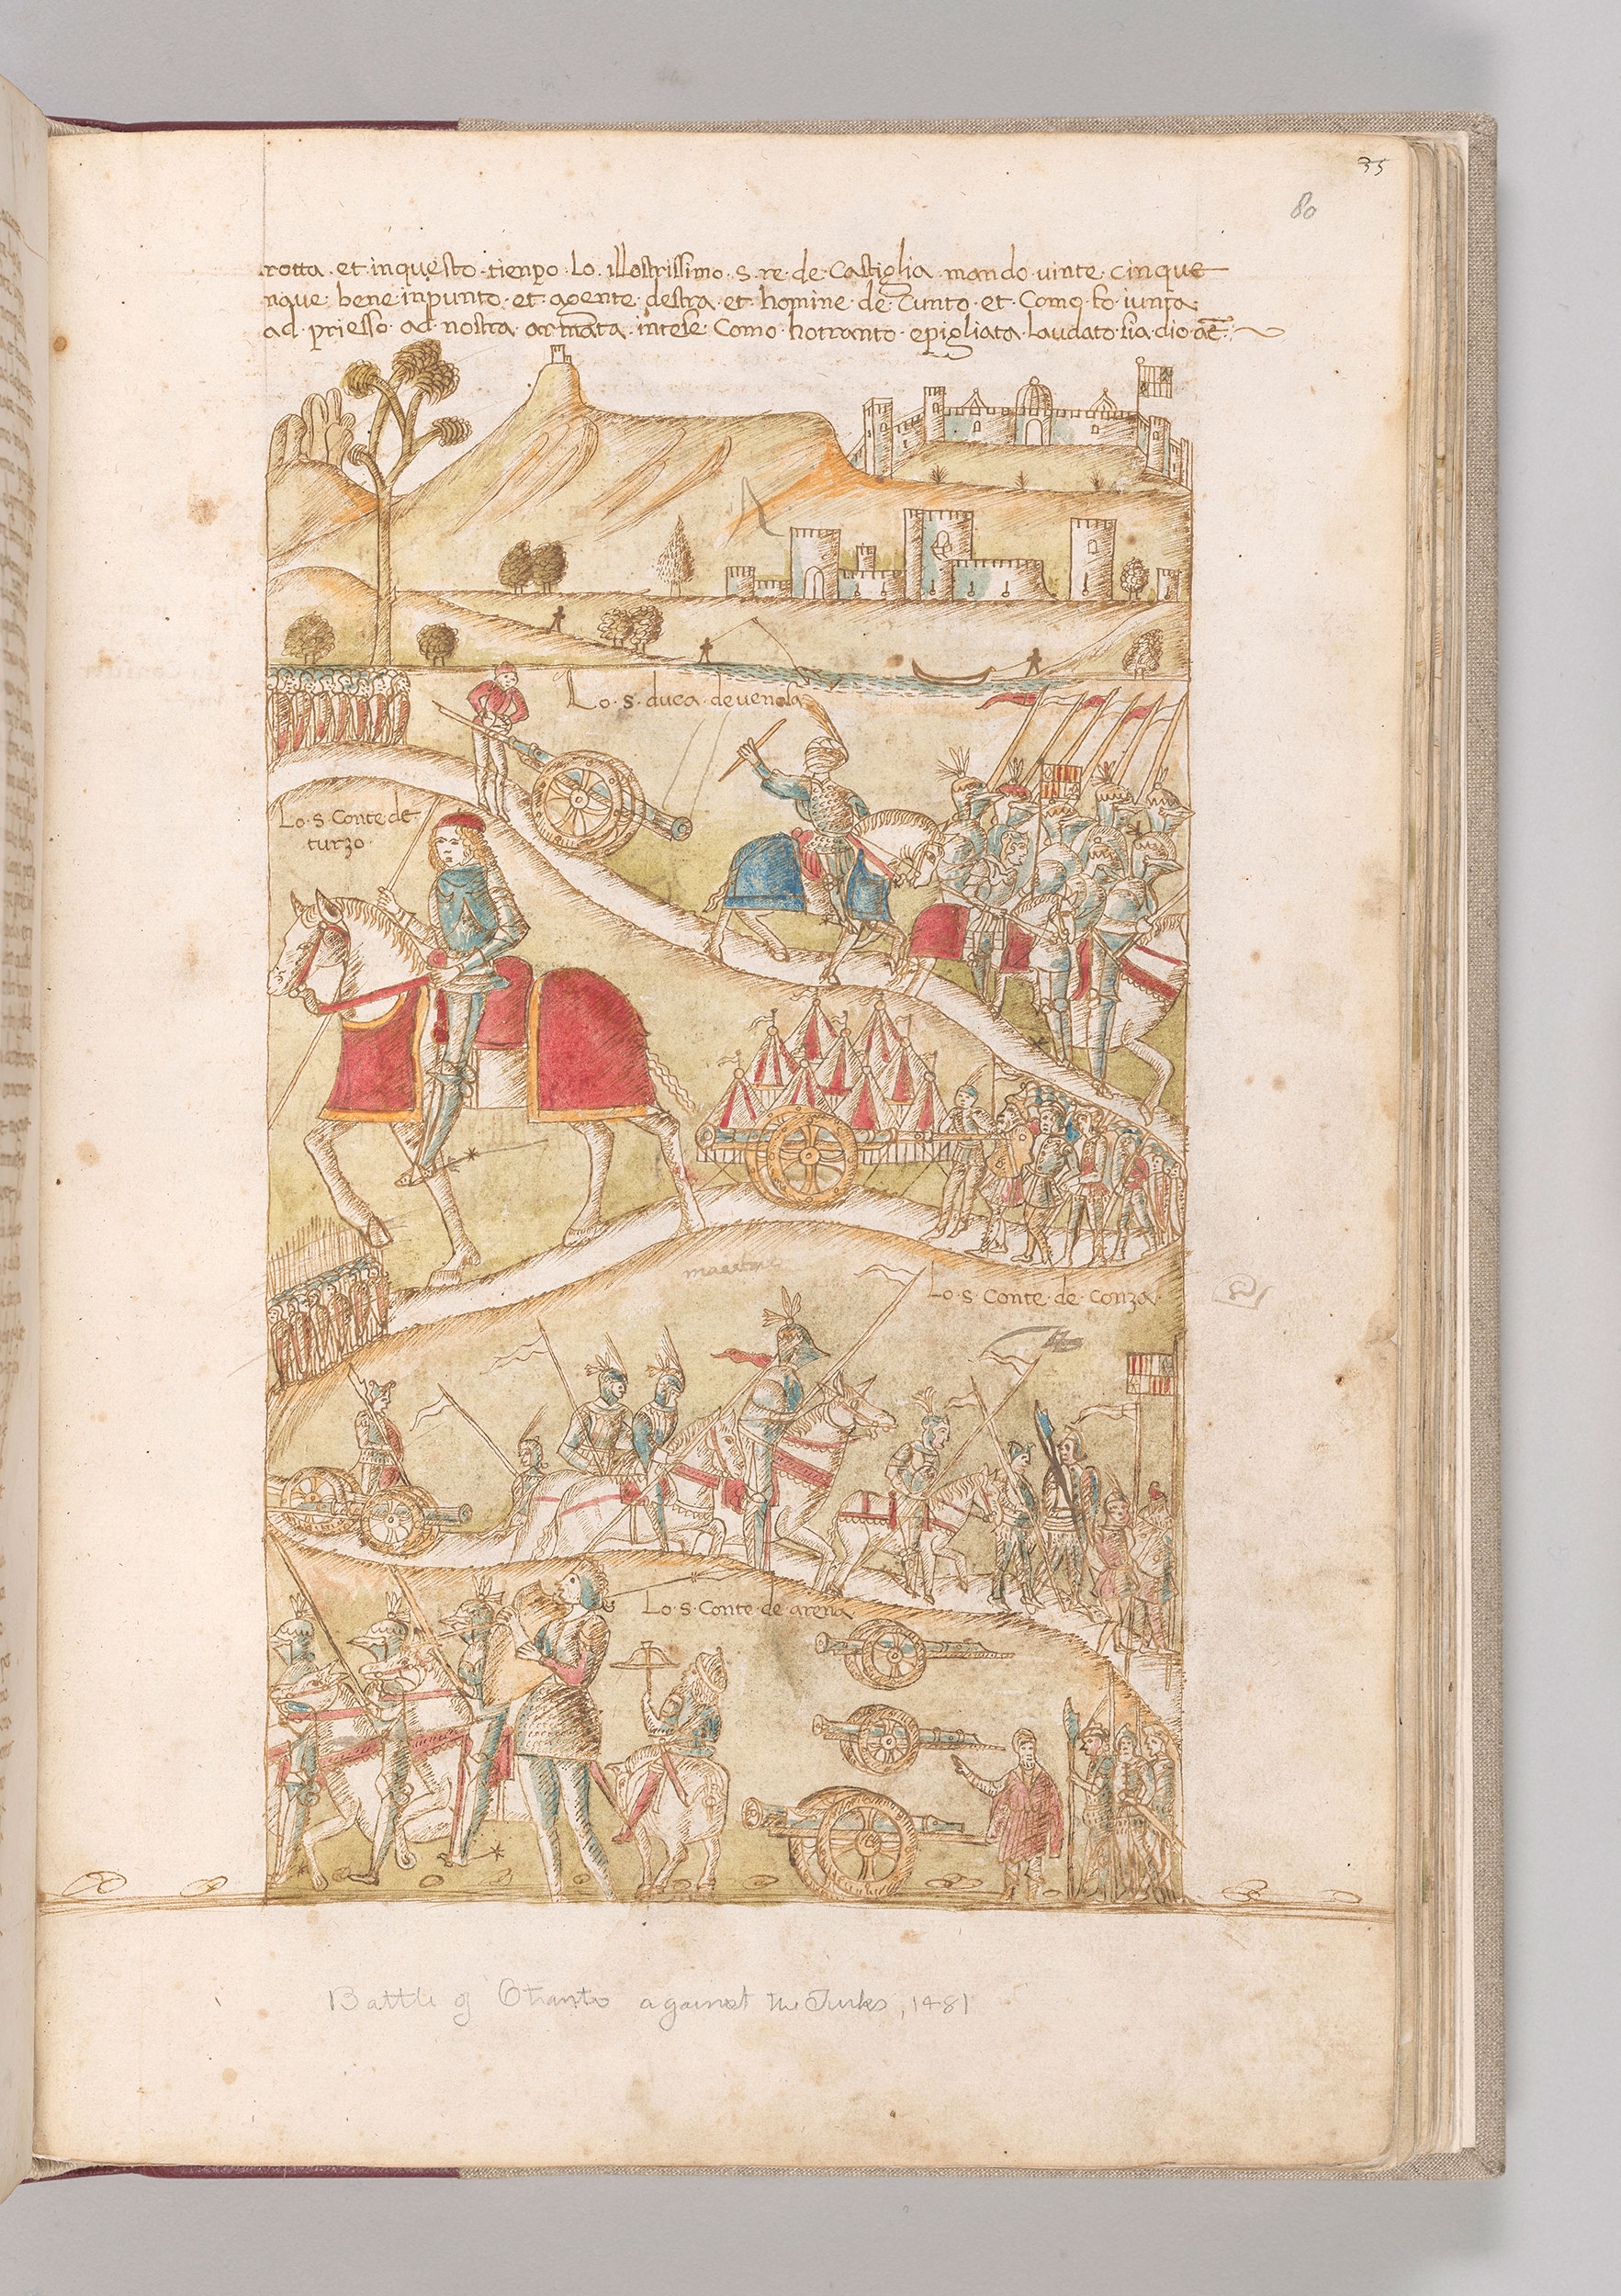 35
80
rotta · et · inquesto · tienpo · Lo · illostrissimo · s · re · de · Castiglia · mando · uinte · cinque
nque · bene inpunto · et · agente · destra · et · homine · de · Cunto · et · Como · fo · iunta ·
ad · priesso · ad · nostra · armata · intese · Como · hotranto · epigliata · Laudato · sia · dio
Lo · s · duca · deuenola
Lo · s · Conte · de ·
turzo ·
Lo · s · Conte · de · Conza ·
Lo · s · Conte · de · arena
Battle of Otranto against the Turks, 1481